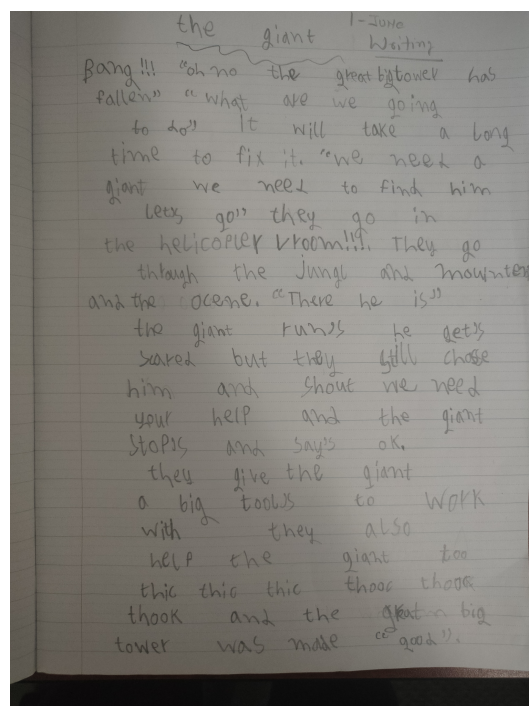 1-JUNE
the giant Writing
Bang!!! "oh no the great big tower has
fallen" "what are we going
to do" It will take a long
time to fix it. "we need a
giant we need to find him
Lets go" they go in
the helicopter vroom!!!. They go
through the jungl and mowntens
and the ocene. "There he is"
the giant run's he get's
scared but they still chase
him and shout we need
your help and the giant
stop's and say's ok.
they give the giant
a big tools to work
with they also
help the giant too
thic thic thic thooc thooc
thook and the great big
tower was made "good".